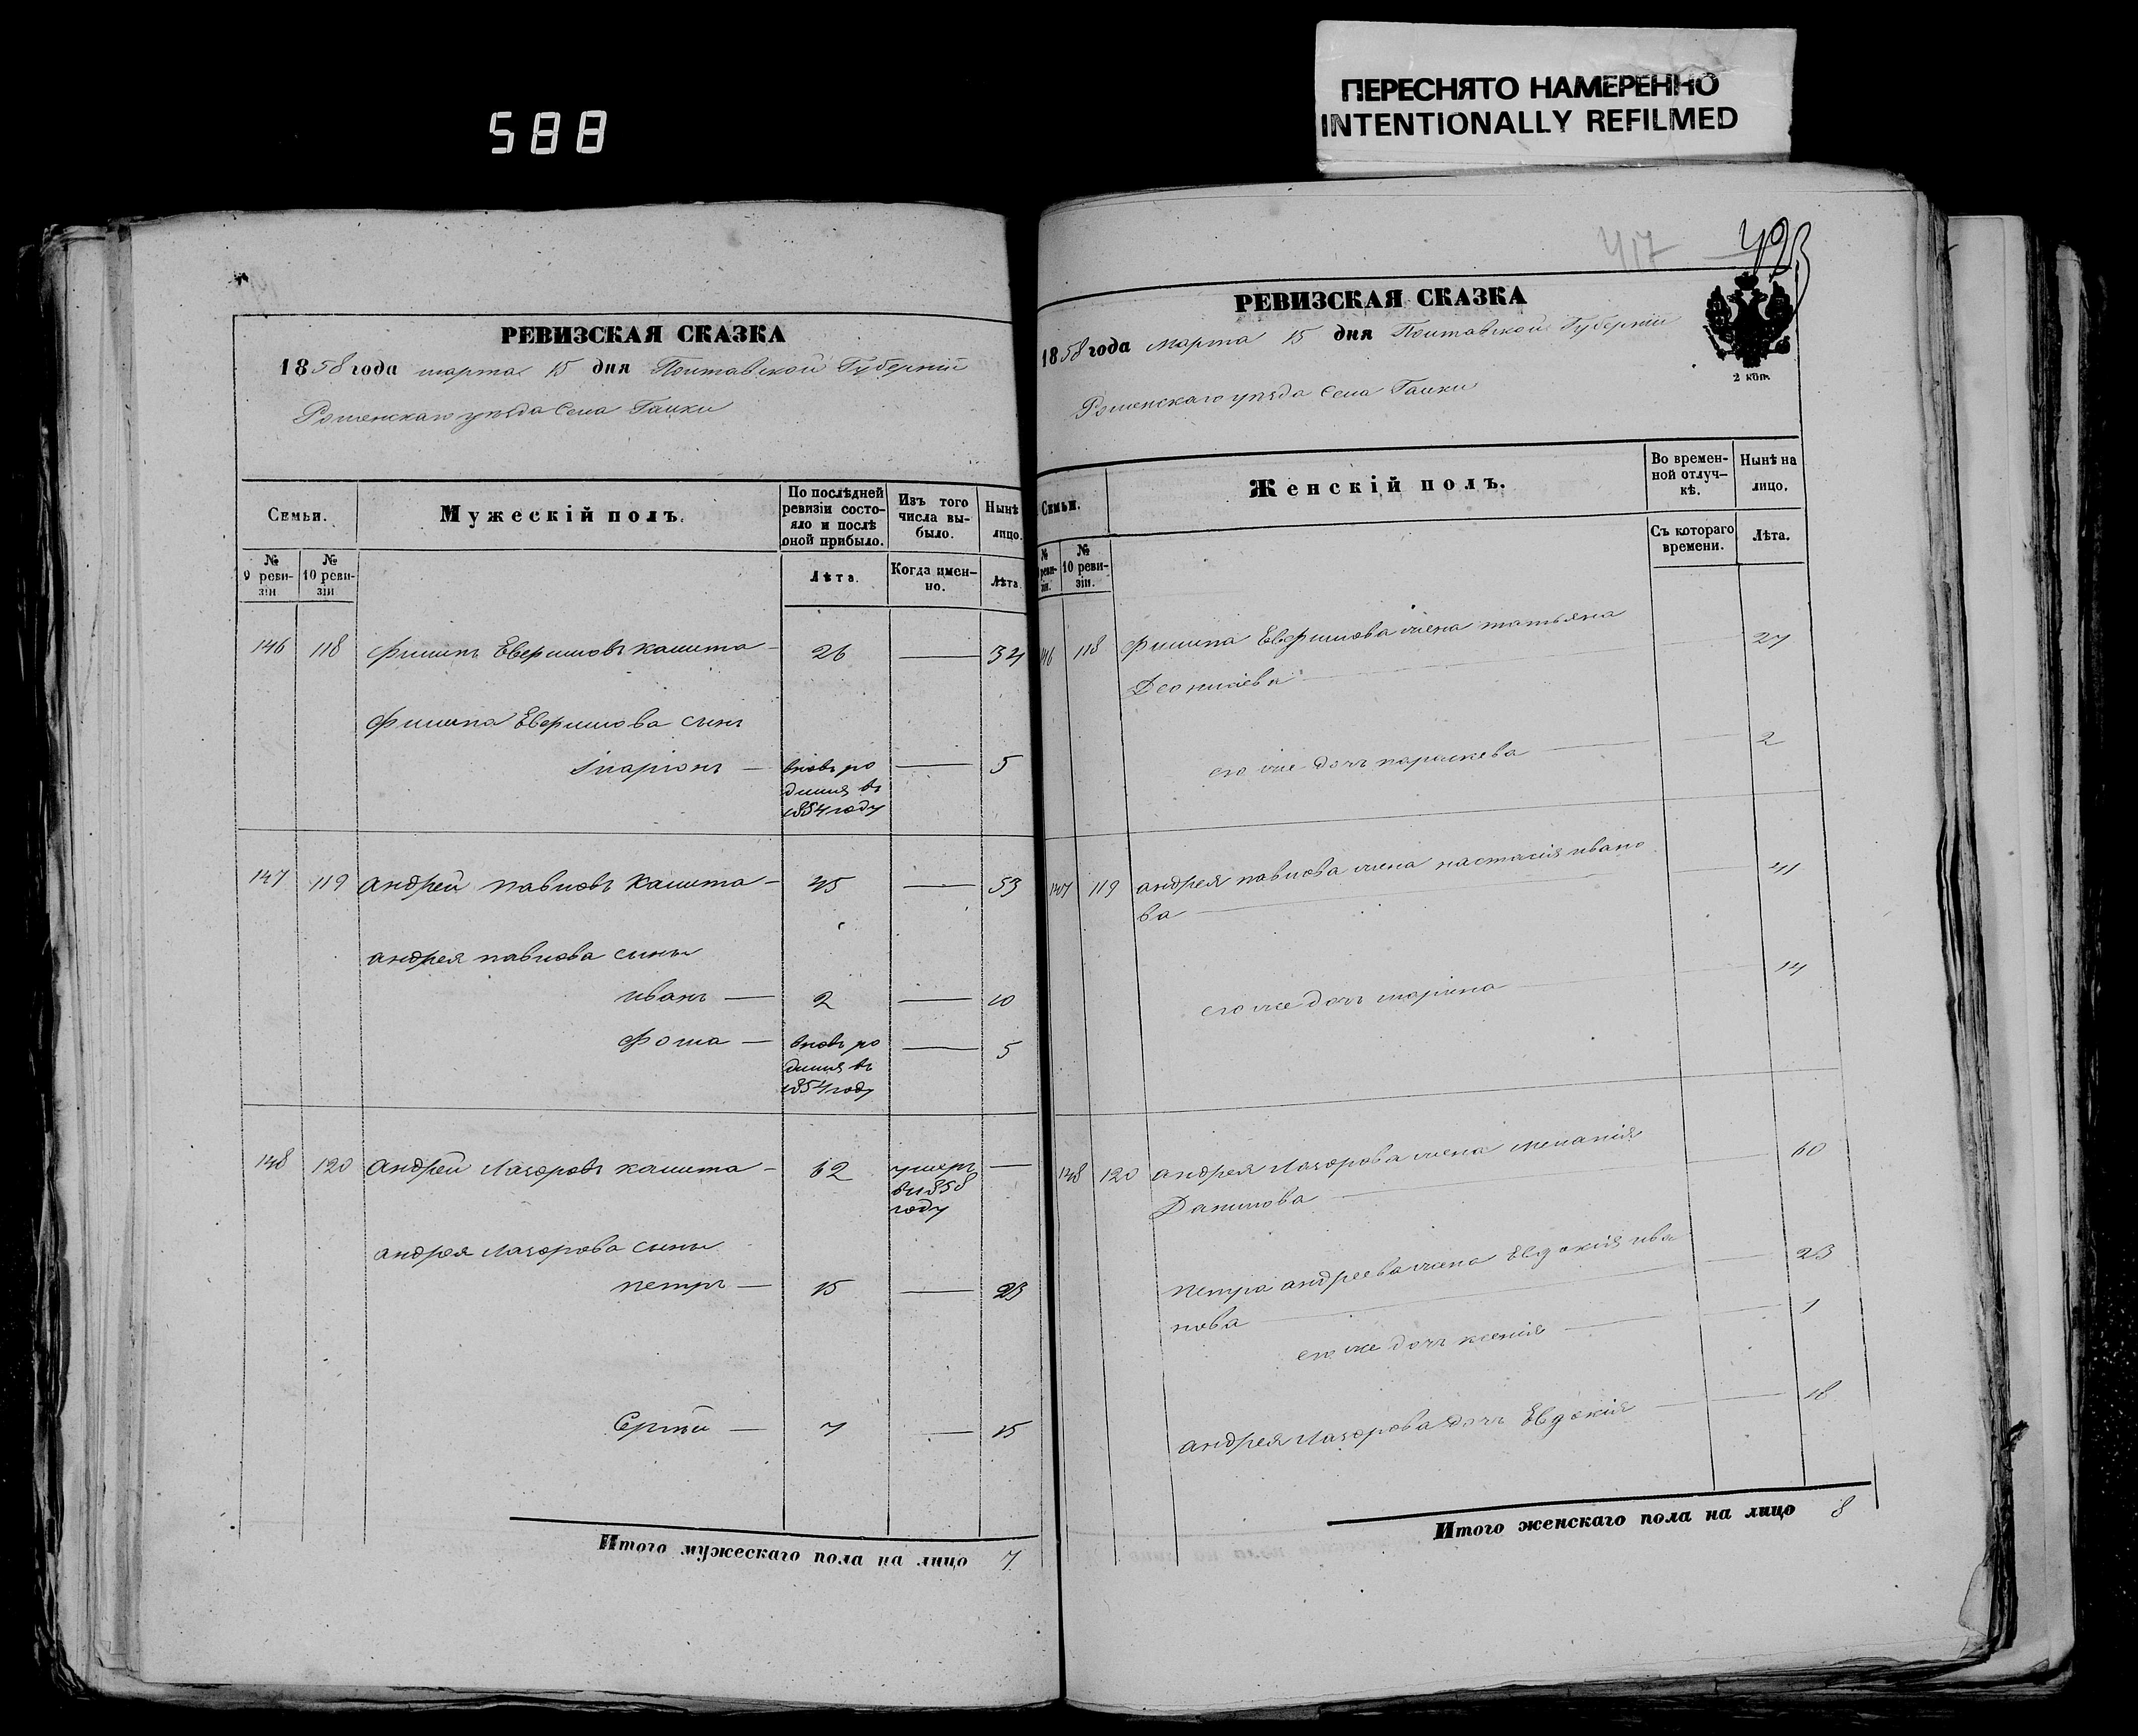 588
ПЕРЕСНЯТО НАМЕРЕННО
INTENTIONALLY REFILMED
РЕВИЗСКАЯ СКАЗКА
1858 года марта 15 дня Полтавской Губерніи
Роменскаго уѣзда Села Галки
Семьи.
Мужескій полъ.
По послѣдней ревизіи состояло и послѣ оной прибыло.
Изъ того числа выбыло.
Нынѣ лицо.
№ 9 ревизіи
№ 10 ревизіи
Лѣта.
Когда именно.
Лѣта.
146 118 Филипъ Евфимовъ Калита — 26 — 34
Филипа Евфимова сынъ
Іларіонъ — вновь ро 5
дился въ
1854 году
147 119 андрей павловъ Калита — 45 — 53
андрея павлова сыны
иванъ — 2 — 10
Фома — вновь ро — 5
дился въ
1854 году
148 120 андрей Лазоровъ калита — 62 умеръ —
въ 1858
году
андрея Лазорова сыны
петръ — 15 — 23
Сергѣй — 7 — 15
Итого мужескаго пола на лицо 7
417 423
РЕВИЗСКАЯ СКАЗКА
2 коп.
1858 года марта 15 дня Полтавской Губерніи
Роменскаго уѣзда Села Галки
Семьи.
Женскій полъ.
Во временной отлучкѣ.
Нынѣ на лицо.
№ ревизіи.
№ 10 ревизіи.
Съ котораго времени.
Лѣта.
146 118 Филипа Евфимова жена татьяна — 27
его же дочь параскева — 2
147 119 андрея павлова жена настасія ивано — 41
ва
его же дочь марина — 14
148 120 андрея Лазорова жена меланія — 60
Данилова
петра андреева жена Евдокія ива — 23
нова
его же дочь ксенія — 1
андрея Лазорова дочь Евдокія — 18
Итого женскаго пола на лицо 8